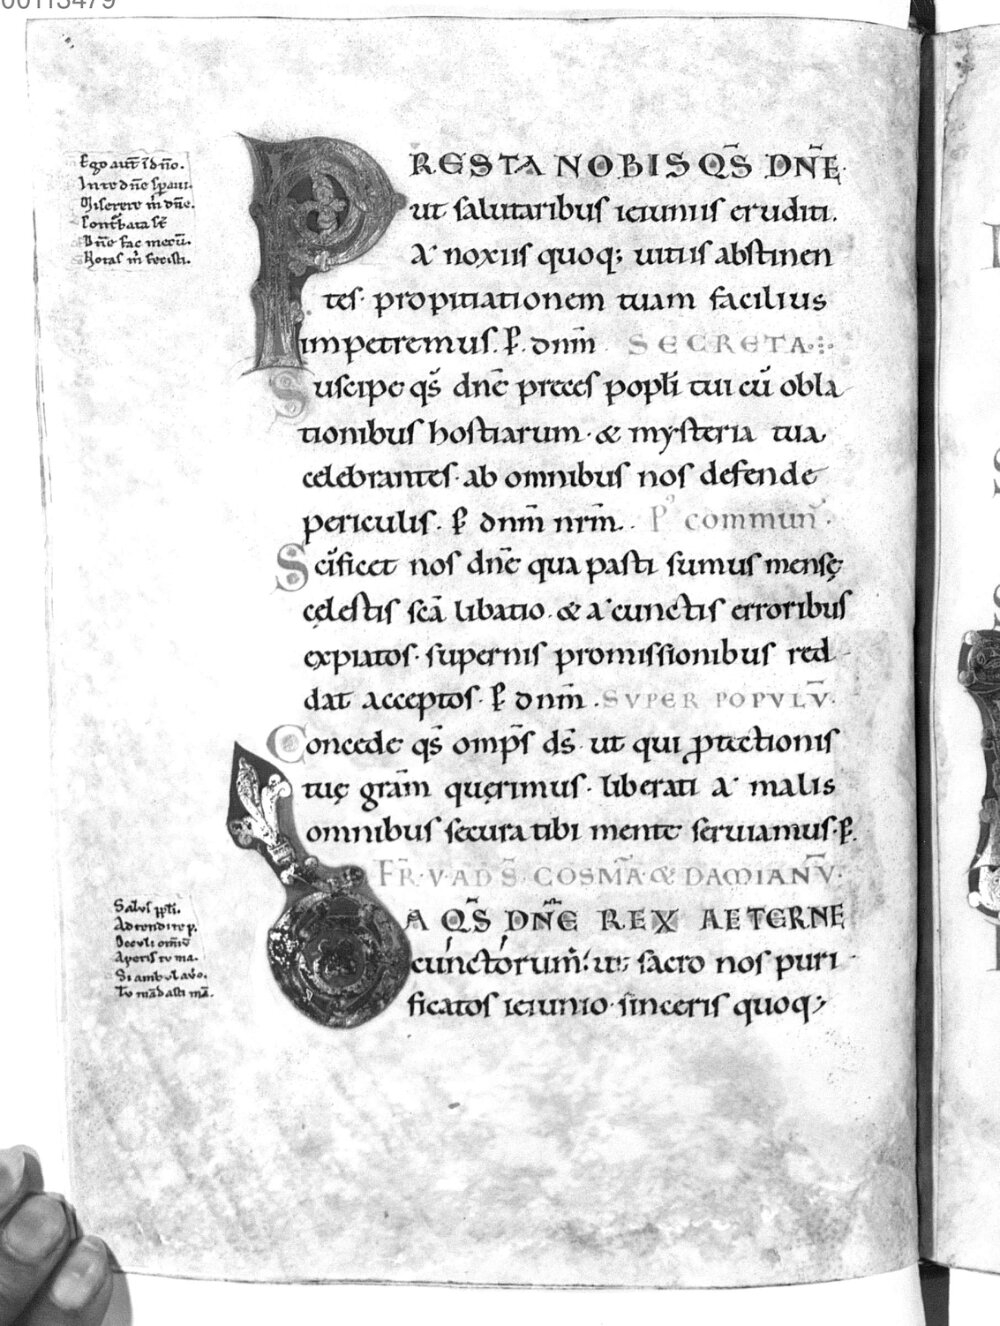 00113479
Ego aut̄ īd n̄o.
Intrdn̄e
Miserere m̄ dn̄e.
Dn̄e fac mecū.
Notas m̄ fecisti.
PRESTA NOBIS QS̄ DN̄E.
ut salutaribus ieiuniis eruditi.
A' noxiis quoq; uitiis abstinen
tes· propitiationem tuam facilius
impetremus. P̄. dnm̄ SECRETA.
Suscipe qs̄ dn̄e preces popl̄i tui cū obla
tionibus hostiarum· & mysteria tua
celebrantes· ab omnibus nos defende
periculis. P̄ dnm̄ nrm̄. Pº commun̄.
Scīficet nos dn̄e qua pasti sumus mensę
cęlestis scā libatio. & a' cunctis erroribus
expiatos· supernis promissionibus red
dat acceptos. P̄ dnm̄. SVPER POPVLV̄.
Concede qs̄ omps̄ ds̄ ut qui ꝓtectionis
tuę grām quęrimus· liberati a' malis
omnibus secura tibi mente seruiamus. P̄.
FR̄·V·AD S̄. COSMĀ & DAMIANV̄.
DA QS̄ DN̄E REX AETERNE
cunctorum: ut; sacro nos puri
ficatos ieiunio· sinceris quoq;
Oculi omīū
Aperis tu ma.
Si ambulauo.
Tu mādasti mā.